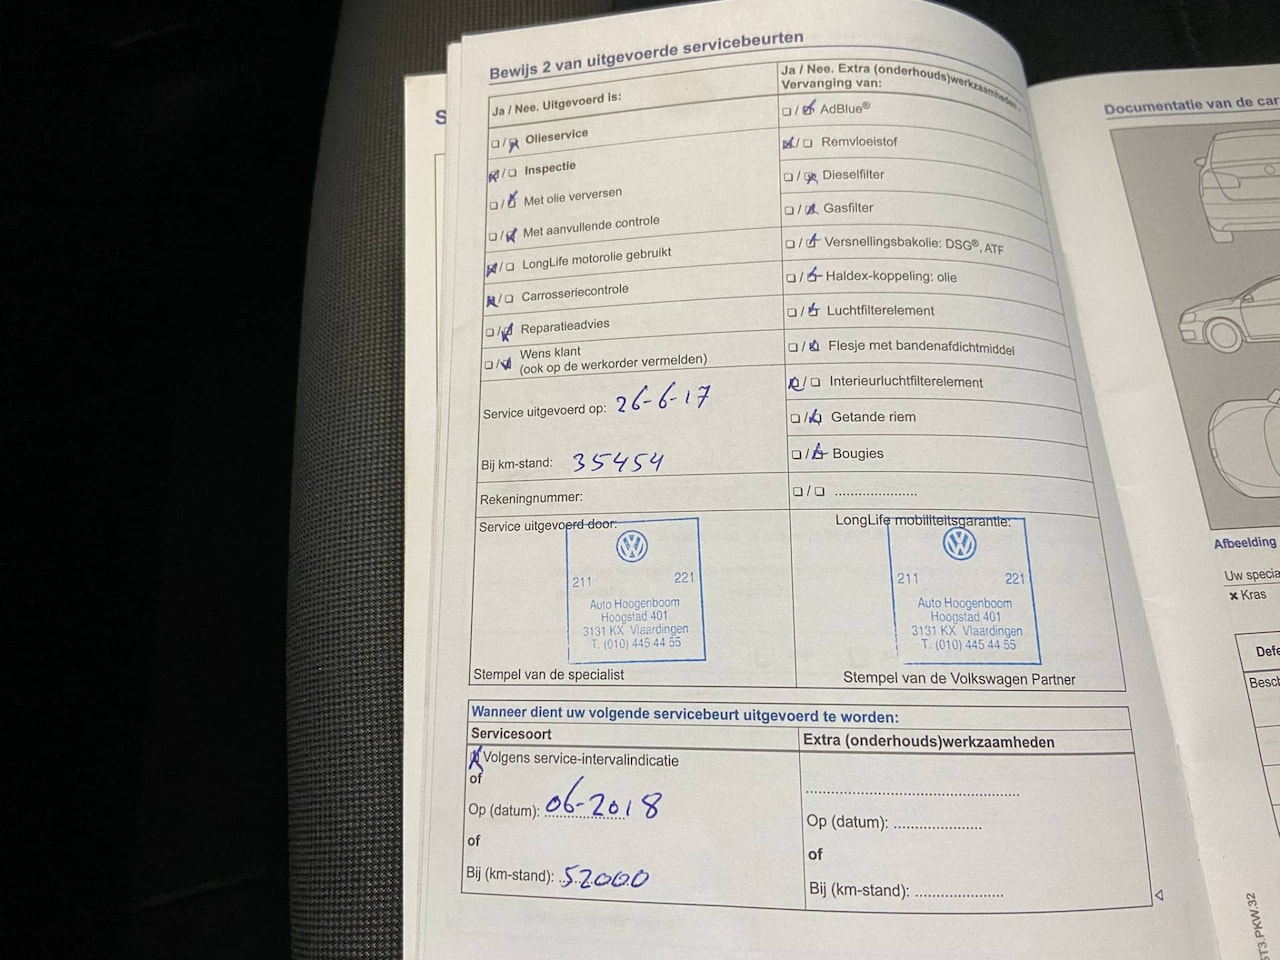 S
Bewijs 2 van uitgevoerde servicebeurten
Ja / Nee. Uitgevoerd is:
❏/❏ Olieservice
❏/❏ Inspectie
❏/❏ Met olie verversen
❏/❏ Met aanvullende controle
❏/❏ LongLife motorolie gebruikt
❏/❏ Carrosseriecontrole
❏/❏ Reparatieadvies
❏/❏ Wens klant
(ook op de werkorder vermelden)
Service uitgevoerd op: 26-6-17
Bij km-stand: 35454
Rekeningnummer:
Ja / Nee. Extra (onderhouds)werkzaamheden.
Vervanging van:
❏/❏ AdBlue®
❏/❏ Remvloeistof
❏/❏ Dieselfilter
❏/❏ Gasfilter
❏/❏ Versnellingsbakolie: DSG®, ATF
❏/❏ Haldex-koppeling: olie
❏/❏ Luchtfilterelement
❏/❏ Flesje met bandenafdichtmiddel
❏/❏ Interieurluchtfilterelement
❏/❏ Getande riem
❏/❏ Bougies
❏/❏ .....................
Service uitgevoerd door:
211 221
Auto Hoogenboom
Hoogstad 401
3131 KX Vlaardingen
T. (010) 445 44 55
Stempel van de specialist
LongLife mobiliteitsgarantie:
211 221
Auto Hoogenboom
Hoogstad 401
3131 KX Vlaardingen
T. (010) 445 44 55
Stempel van de Volkswagen Partner
Wanneer dient uw volgende servicebeurt uitgevoerd te worden:
Servicesoort
Volgens service-intervalindicatie
of
Op (datum): 06-2018
of
Bij (km-stand): 52000
Extra (onderhouds)werkzaamheden
Op (datum): .....................
of
Bij (km-stand): .....................
Documentatie van de car
Afbeelding
Uw specia
× Kras
Defe
Besch
ST3.PKW.32